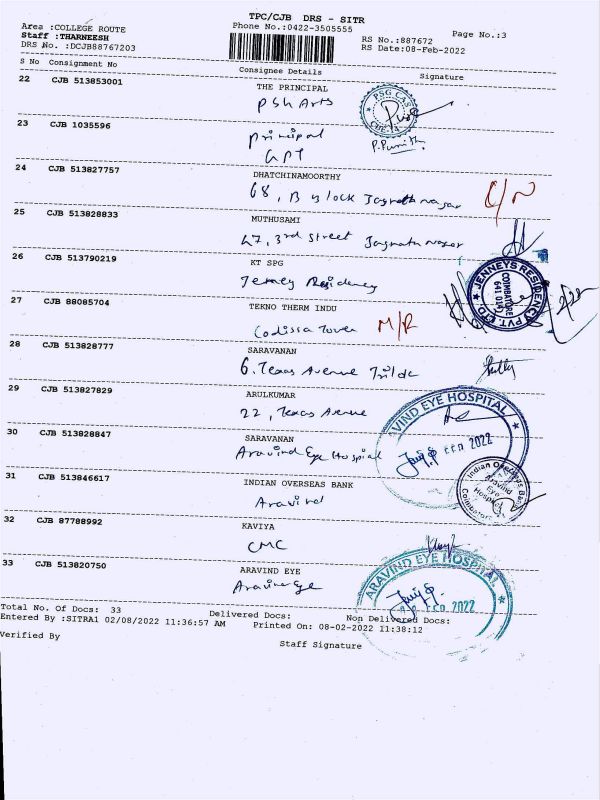 TPC/CJB DRS - SITR
Area :COLLEGE ROUTE
Phone No.:0422-3505555
Page No.:3
Staff :THARNEESH
RS No.:887672
DRS No. :DCJB88767203
RS Date:08-Feb-2022
S No Consignment No Consignee Details Signature
22 CJB 513853001 THE PRINCIPAL
PSG Arts
PSG CAS
CBE-14
23 CJB 1035596
Principal
GPT
24 CJB 513827757 DHATCHINAMOORTHY
68, B block Jagnath nagar
25 CJB 513828833 MUTHUSAMI
47, 3rd street Jagnath nagar
26 CJB 513790219 KT SPG
Jenneys Residency
JENNEYS RESIDENCY PVT. LTD
COIMBATORE
641 014
27 CJB 88085704 TEKNO THERM INDU
Codissia Tower M/R
28 CJB 513828777 SARAVANAN
6, Texas Avenue
29 CJB 513827829 ARULKUMAR
22, Texas Avenue
ARAVIND EYE HOSPITAL
FEB 2022
30 CJB 513828847 SARAVANAN
Aravind Eye Hospital
31 CJB 513846617 INDIAN OVERSEAS BANK
Aravind
Indian Overseas Bank
Aravind
Eye
Hospital
Coimbatore
32 CJB 87788992 KAVIYA
CMC
33 CJB 513820750 ARAVIND EYE
Aravind Eye
ARAVIND EYE HOSPITAL
FEB 2022
Total No. Of Docs: 33 Delivered Docs: Non Delivered Docs:
Entered By :SITRA1 02/08/2022 11:36:57 AM Printed On: 08-02-2022 11:38:12
Verified By Staff Signature